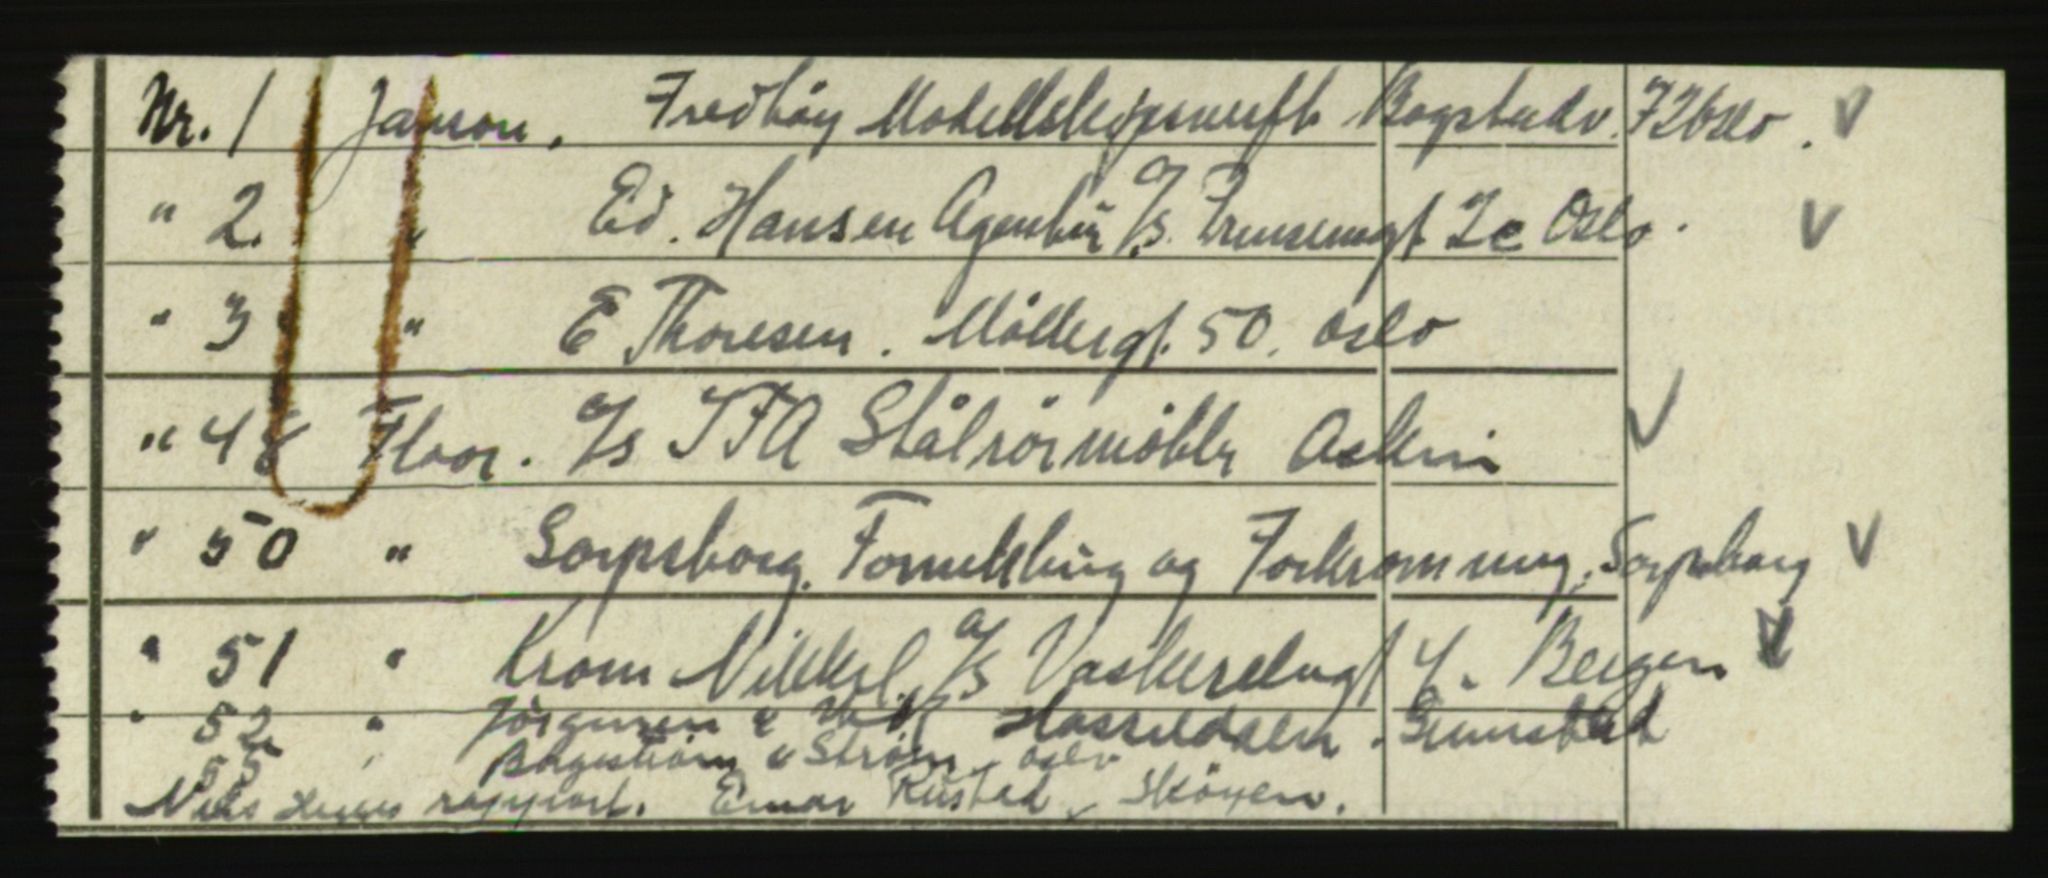 Nr. 1 Janson, Fredhøy Modellskipsverft Bogstadv. 72 Oslo.
" 2. " Ed. Hansen Agentur A/S. Prinsensgt. 2c Oslo.
" 3 " E Thoresen. Møllergt. 50. Oslo
" 48 Floor. A/S ITA Stålrörmöbler Askim
" 50 " Sarpsborg. Fornikkling og Forkromning, Sarpsborg
" 51 " Krom Nikkel A/S Vaskerelvgt 4. Bergen
" 52 " Jörgensen & Hasseldalen. Grimstad
55 " & Ström Oslo
Nils rapport. Einar Rustad, Skøyen.